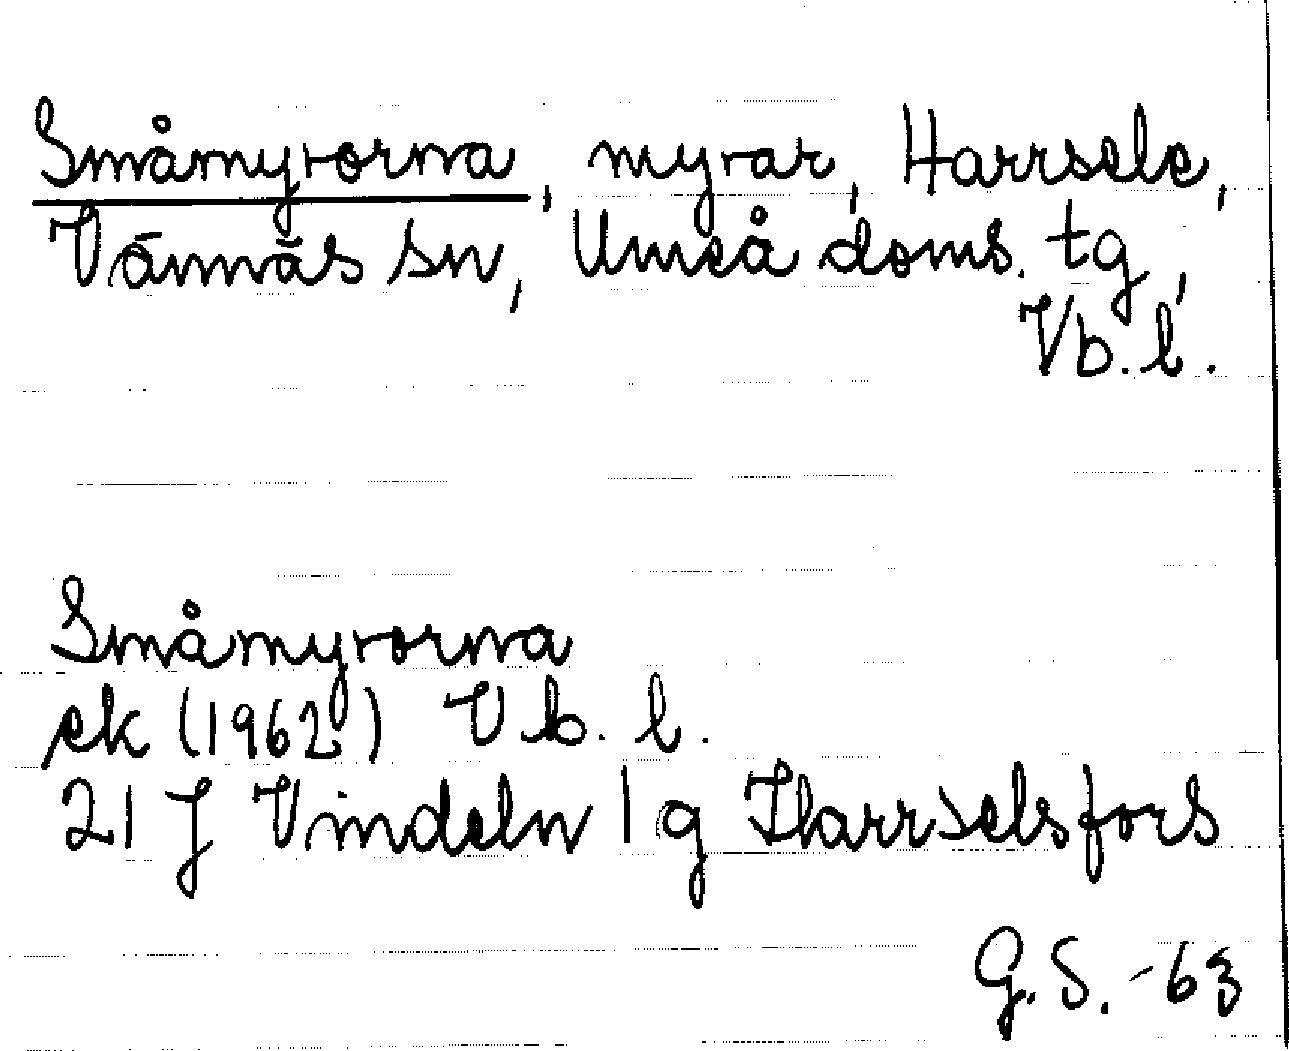 Småmyrorna, myrar, Harrsele,
Vännäs sn, Umeå doms. tg,
Vb. l.
Småmyrorna
ek (1962) Vb. l.
21 J Vindeln 1 g Harrselsfors
G. S. -63